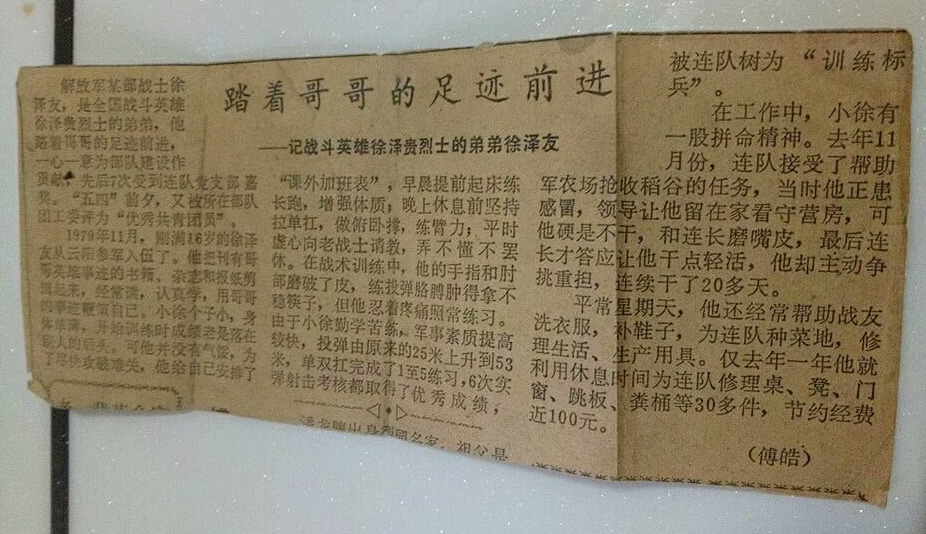 踏着哥哥的足迹前进
——记战斗英雄徐泽贵烈士的弟弟徐泽友
解放军某部战士徐
泽友，是全国战斗英雄
徐泽贵烈士的弟弟，他
踏着哥哥的足迹前进，
一心一意为部队建设作
贡献，先后7次受到连队党支部嘉
奖。“五四”前夕，又被所在部队
团工委评为“优秀共青团员”。
1979年11月，刚满16岁的徐泽
友从云阳参军入伍了。他把刊有哥
哥英雄事迹的书籍、杂志和报纸剪
辑起来，经常读，认真学，用哥哥
的事迹鞭策自己。小徐个子小，身
体单薄，开始训练时成绩老是落在
别人的后头。可他并没有气馁，为
了尽快攻破难关，他给自己安排了
“课外加班表”，早晨提前起床练
长跑，增强体质；晚上休息前坚持
拉单扛，做俯卧撑，练臂力；平时
虚心向老战士请教，弄不懂不罢
休。在战术训练中，他的手指和肘
部磨破了皮，练投弹胳膊肿得拿不
稳筷子，但他忍着疼痛照常练习。
由于小徐勤学苦练，军事素质提高
较快，投弹由原来的25米上升到53
米，单双扛完成了1至5练习，6次实
弹射击考核都取得了优秀成绩，
被连队树为“训练标
兵”。
在工作中，小徐有
一股拼命精神。去年11
月份，连队接受了帮助
军农场抢收稻谷的任务，当时他正患
感冒，领导让他留在家看守营房，可
他硬是不干，和连长磨嘴皮，最后连
长才答应让他干点轻活，他却主动争
挑重担，连续干了20多天。
平常星期天，他还经常帮助战友
洗衣服，补鞋子，为连队种菜地，修
理生活、生产用具。仅去年一年他就
利用休息时间为连队修理桌、凳、门
窗、跳板、粪桶等30多件，节约经费
近100元。
（傅皓）